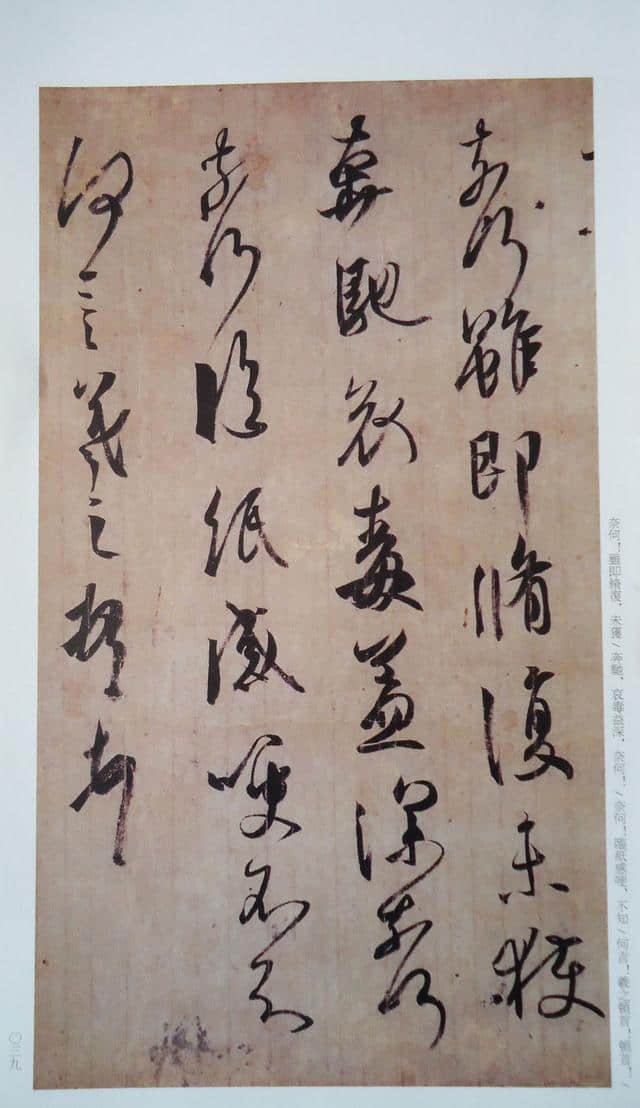 奈何雖即脩復未獲
奔馳哀毒益深奈何
奈何臨紙感哽不知
何言羲之頓首
奈何！雖即脩復，未獲／奔馳，哀毒益深，奈何！／奈何！臨紙感哽，不知／何言！羲之頓首，頓首！／
〇三九